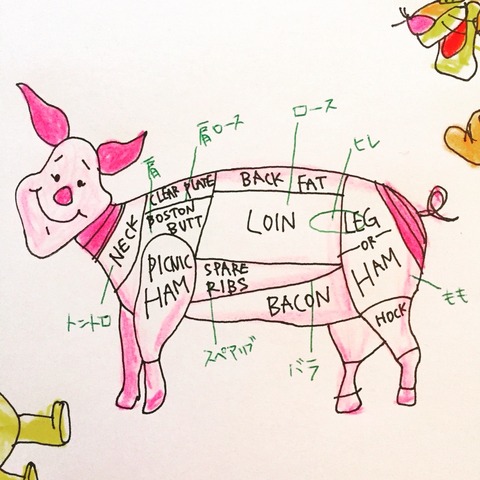 肩ロース
ロース
ヒレ
肩
CLEAR PLATE
BACK FAT
BOSTON
BUTT
NECK
LOIN
LEG
OR
HAM
PICNIC
HAM
SPARE
RIBS
BACON
HOCK
もも
トントロ
スペアリブ
バラ